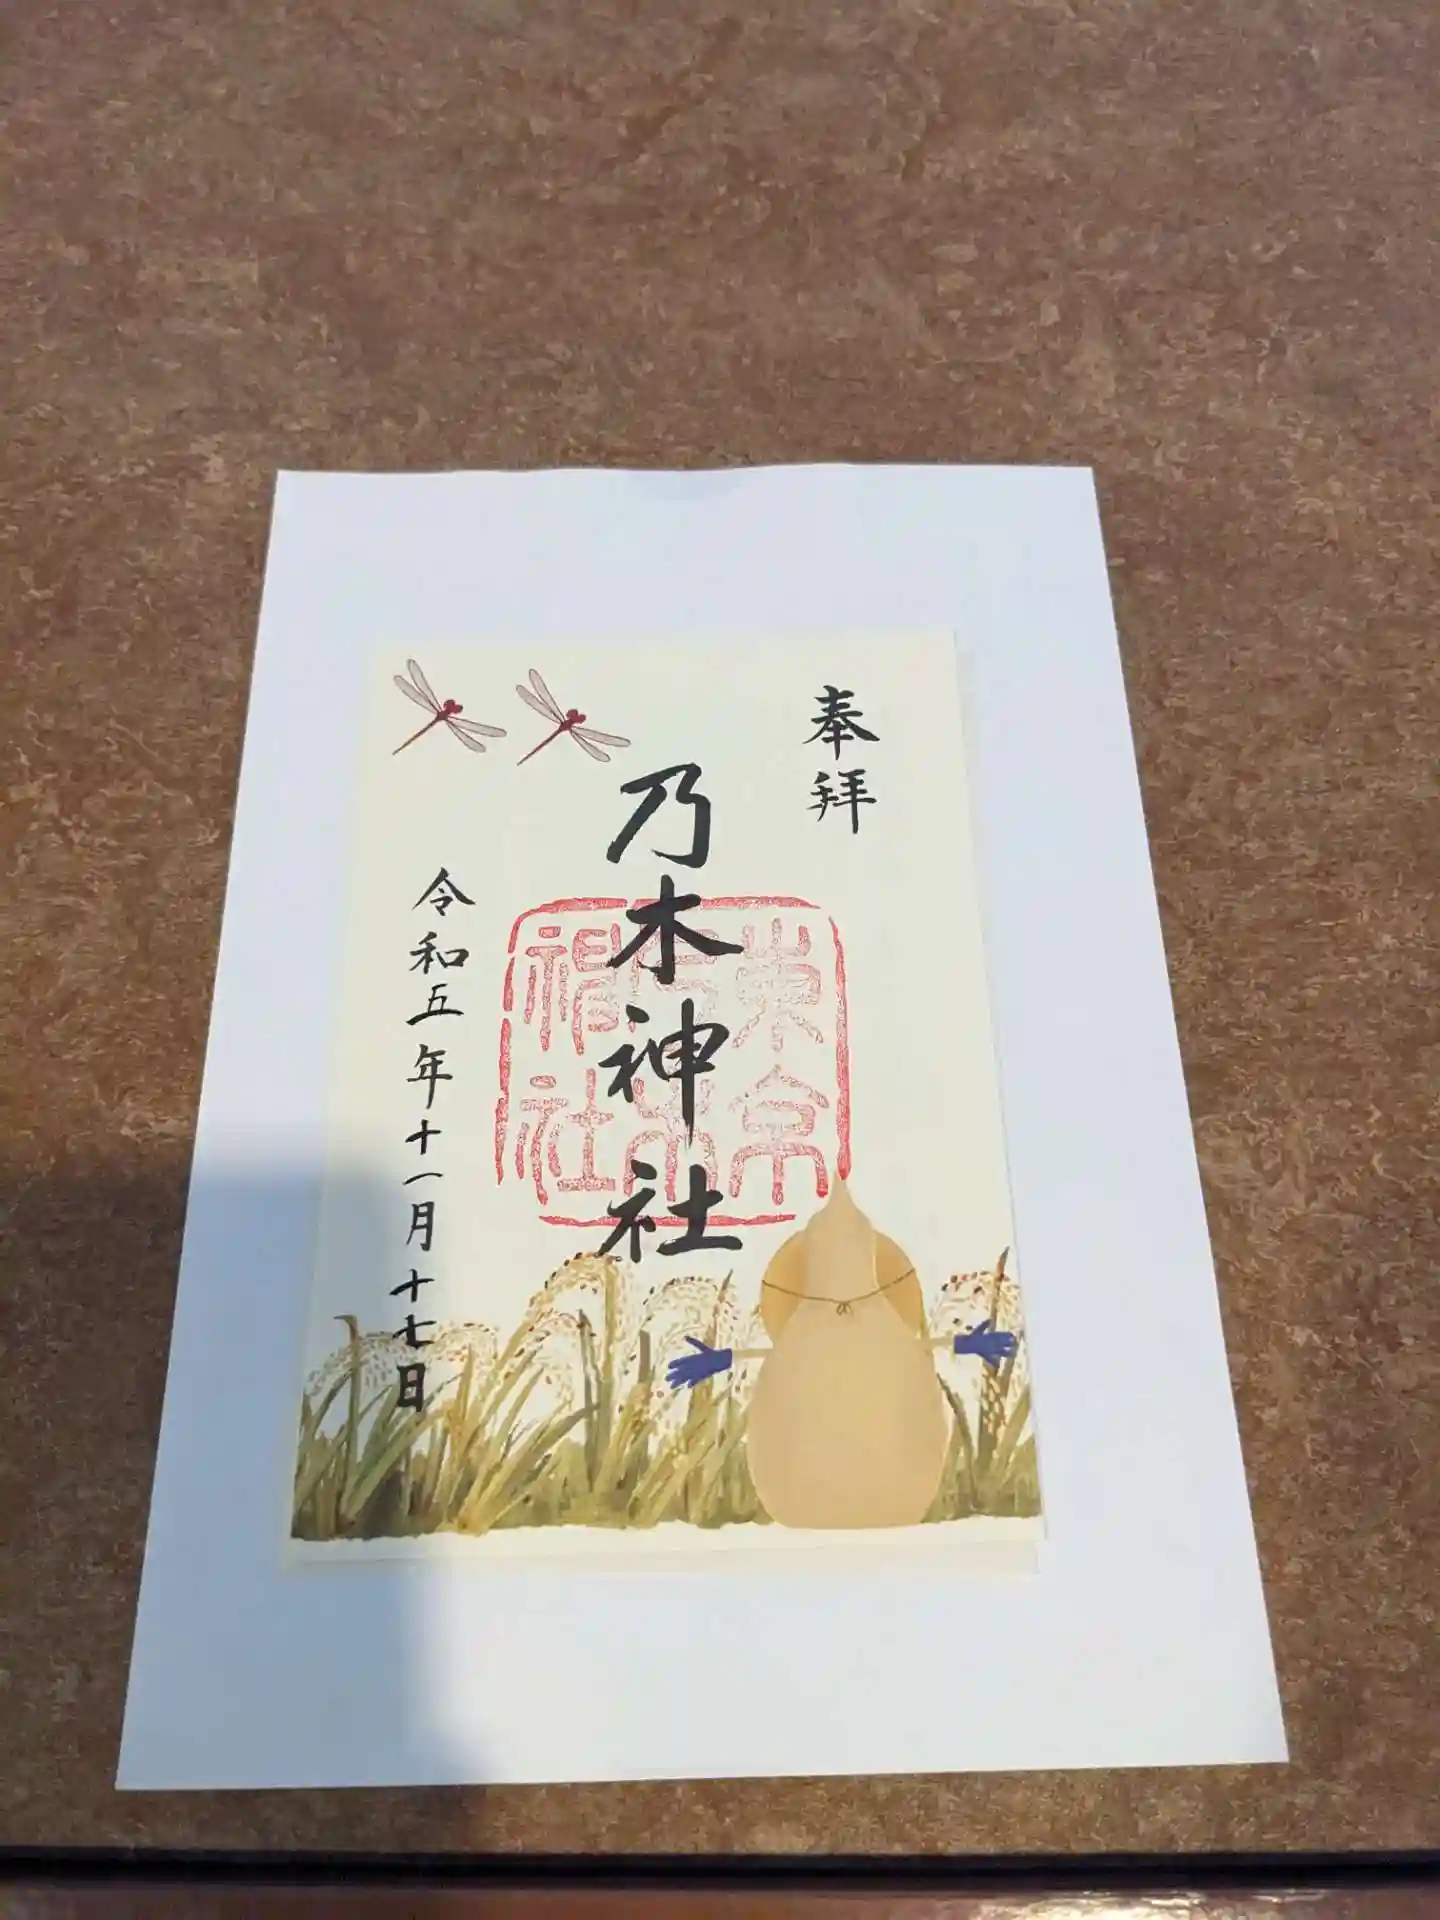 奉拝
乃木神社
東京
乃木
神社
令和五年十一月十七日